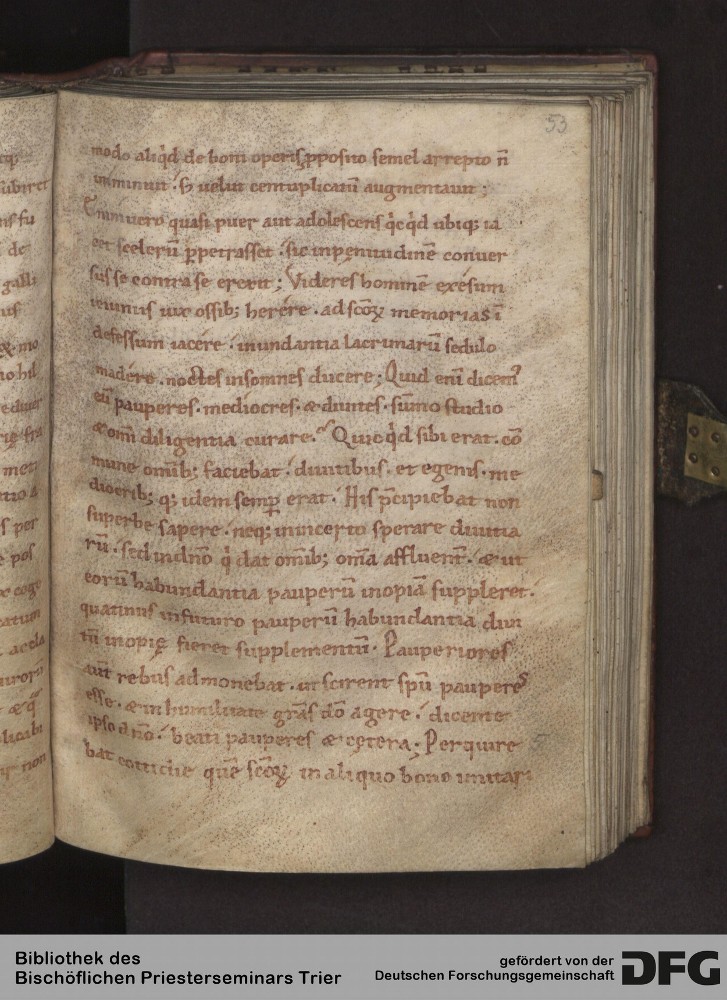 53
modo aliqd de boni operis pposito semel arrepto n̄
inminuit . s; uelut centuplicatū augmentauit ;
Enimuero quasi puer aut adolescens qcqd ubiq; ia
cet scelerū ppetrasset . sic inpenitudinē conuer
sus se contra se erexit ; Videres hominē exesum
ieiuniis uix ossib; herére . ad scōꝝ memorias ī
defessum iacére . inundantia lacrimarū sedulo
madére . noctes insomnes ducere ; Quid eni dicem'
eū pauperes . mediocres . & diuites . sūmo studio
& omī diligentia curare . Quicqd sibi erat . cō
mune omīb; faciebat . diuitibus . et egenis . me
diocrib; q; idem semp erat . His pcipiebat non
superbe sapere . neq; in incerto sperare diuitia
rū . sed in dn̄o q dat omīb; om̄a affluent̄ . & ut
eorū habundantia pauperū inopiā suppleret .
quatinus infuturo pauperū habundantia diui
tū inopię fieret supplementū . Pauperiores
aūt rebus admonebat . ut scirent spū pauperes
esse . & in humilitate grās dō agere . dicente
ipso dn̄o . beati pauperes & cętera ; Perquire
bat cottidie quē scōꝝ in aliquo bono imitar;
5
Bibliothek des
Bischöflichen Priesterseminars Trier
gefördert von der
Deutschen Forschungsgemeinschaft
DFG